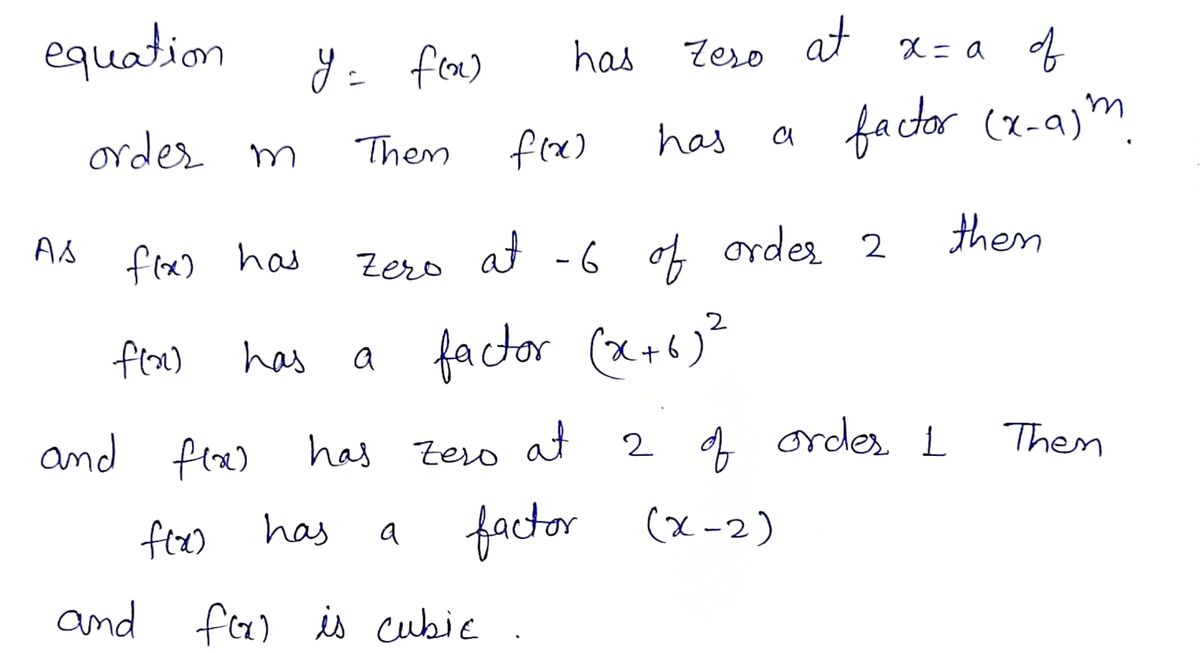 equation y = f(x) has zero at x = a of
order m Then f(x) has a factor (x-a)^m.
As f(x) has zero at -6 of order 2 then
f(x) has a factor (x+6)^2
and f(x) has zero at 2 of order 1 Then
f(x) has a factor (x-2)
and f(x) is cubic.